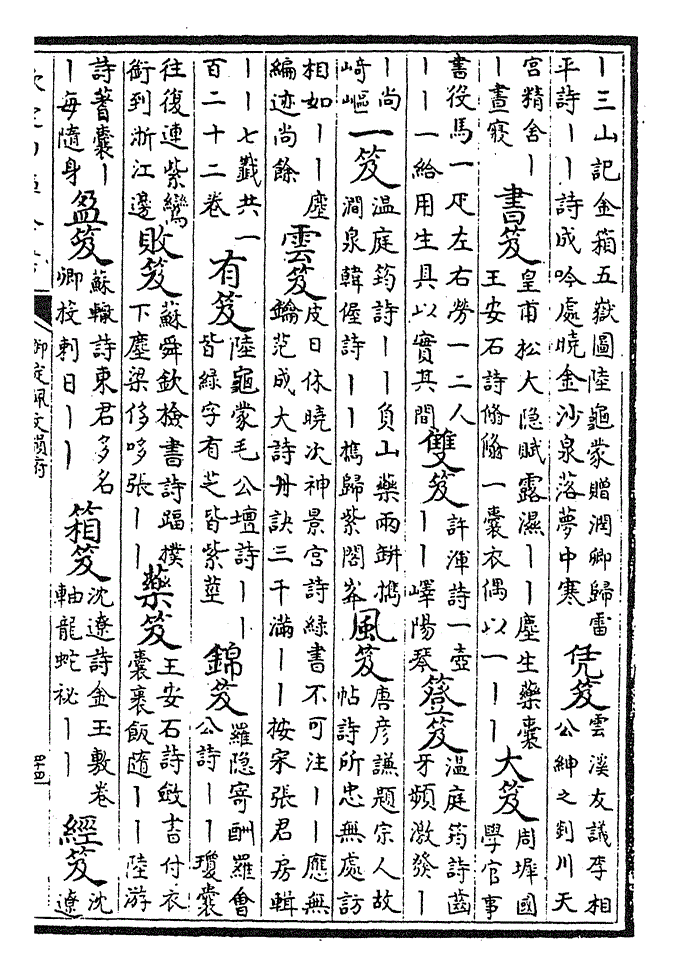 丨三山記金箱五嶽圖陸龜蒙贈潤卿歸雷
平詩丨丨詩成吟處曉金沙泉落夢中寒
凭笈
雲溪友議李相
公紳之刻川天
宮精舍丨
丨晝寢
書笈
皇甫松大隐賦露濕丨丨塵生藥囊
王安石詩翛翛一囊衣偶以一丨丨
大笈
周墀國
學官事
書役馬一疋左右勞一二人
丨丨一給用生具以實其間
雙笈
許渾詩一壺
丨丨嶧陽琴
簦笈
温庭筠詩齒
牙頻激發丨
丨尚
崎嶇
一笈
温庭筠詩丨丨負山藥兩缾携
澗泉韓偓詩丨丨携歸紫閣峯
風笈
唐彦謙題宗人故
帖詩所忠無處訪
相如丨丨塵
編迹尚餘
雲笈
皮日休曉次神景宮詩綠書不可注丨丨應無
鑰范成大詩丹訣三千滿丨丨按宋張君房輯
丨丨七籤共一
百二十二卷
有笈
陸龜蒙毛公壇詩丨丨
皆綠字有芝皆紫莖
錦笈
羅隐寄酬羅㑹
公詩丨丨瓊囊
往復連紫鸞
銜到浙江邊
敗笈
蘇舜欽檢書詩蹈撲
下塵梁侈哆張丨丨
藥笈
王安石詩斂書付衣
囊裹飯隨丨丨陸游
詩蓍囊丨
丨每隨身
盈笈
蘇轍詩東君多名
卿投刺日丨丨
箱笈
沈遼詩金玉敷卷
軸龍蛇祕丨丨
經笈
沈
遼
御定佩文韻府